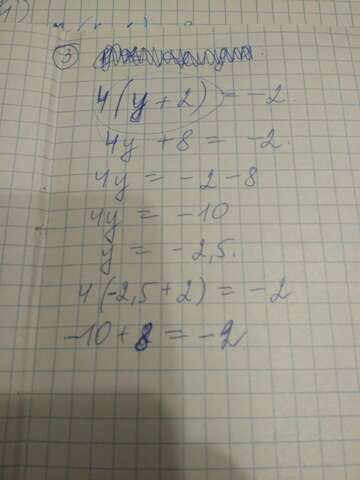 1)
3
4(y+2) = -2
4y + 8 = -2
4y = -2-8
4y = -10
y = -2,5.
4(-2,5+2) = -2
-10+8 = -2